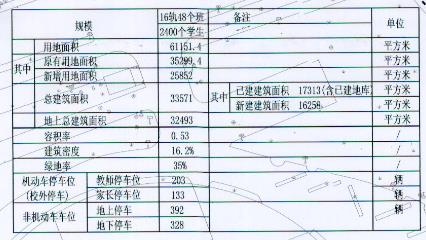 规模 16轨48个班 备注 单位
2400个学生
用地面积 61151.4 平方米
其中 原有用地面积 35299.4 平方米
新增用地面积 25852 平方米
总建筑面积 33571 其中 已建建筑面积 17313(含已建地库) 平方米
新建建筑面积 16258 平方米
地上总建筑面积 32493 平方米
容积率 0.53 /
建筑密度 16.2% /
绿地率 35% /
机动车停车位 教师停车位 203 辆
(校外停车) 家长停车位 133 辆
非机动车车位 地上停车 392 辆
地下停车 328